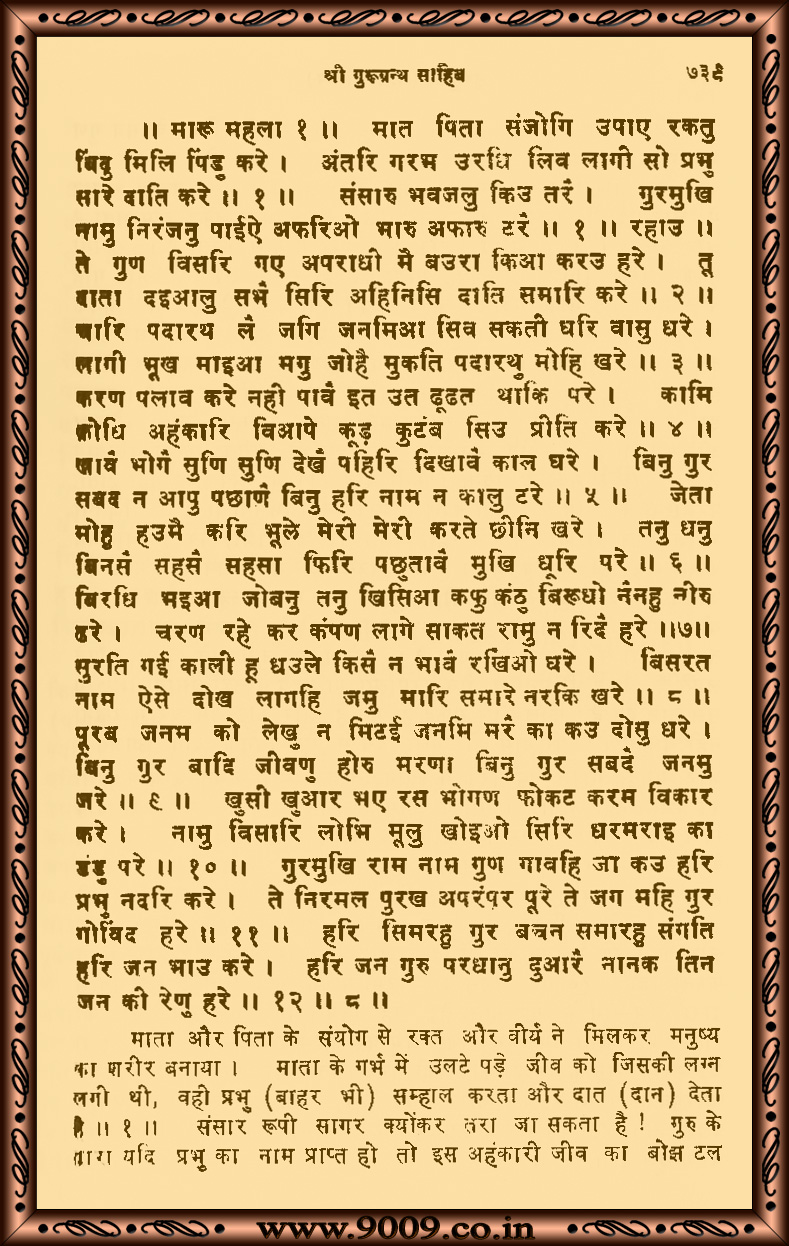 श्री गुरूग्रन्थ साहिब ७३९
॥ मारू महला १ ॥ मात पिता संजोगि उपाए रकतु
बिंदु मिलि पिंडु करे । अंतरि गरभ उरधि लिव लागी सो प्रभु
सारे दाति करे ॥ १ ॥ संसारु भवजलु किउ तरै । गुरमुखि
नामु निरंजनु पाईऐ अफरिओ भारु अफारु टरै ॥ १ ॥ रहाउ ॥
ते गुण विसरि गए अपराधी मै बउरा किआ करउ हरे । तू
दाता दइआलु सभै सिरि अहिनिसि दाति समारि करे ॥ २ ॥
चारि पदारथ लै जगि जनमिआ सिव सकती घरि वासु धरे ।
लागी भूख माइआ मगु जोहै मुकति पदारथु मोहि खरे ॥ ३ ॥
करण पलाव करे नही पावै इत उत ढूढत थाकि परे । कामि
क्रोधि अहंकारि विआपे कूड़ कुटंब सिउ प्रीति करे ॥ ४ ॥
खावै भोगै सुणि सुणि देखै पहिरि दिखावै काल घरे । बिनु गुर
सबद न आपु पछाणै बिनु हरि नाम न कालु टरे ॥ ५ ॥ जेता
मोहु हउमै करि भूले मेरी मेरी करते छीनि खरे । तनु धनु
बिनसै सहसै सहसा फिरि पछुतावै मुखि धूरि परे ॥ ६ ॥
बिरधि भइआ जोबनु तनु खिसिआ कफु कंठु बिरूधो नैनहु नीरु
ढरे । चरण रहे कर कंपण लागे साकत रामु न रिदै हरे ॥७॥
सुरति गई काली हू धउले किसै न भावै रखिओ घरे । बिसरत
नाम ऐसे दोख लागहि जमु मारि समारे नरकि खरे ॥ ८ ॥
पूरब जनम को लेखु न मिटई जनमि मरै का कउ दोसु धरे ।
बिनु गुर बादि जीवणु होरु मरणा बिनु गुर सबदै जनमु
जरे ॥ ९ ॥ खुसी खुआर भए रस भोगण फोकट करम विकार
करे । नामु विसारि लोभि मूलु खोइओ सिरि धरमराइ का
डंडु परे ॥ १० ॥ गुरमुखि राम नाम गुण गावहि जा कउ हरि
प्रभु नदरि करे । ते निरमल पुरख अपरंपर पूरे ते जग महि गुर
गोविंद हरे ॥ ११ ॥ हरि सिमरहु गुर बचन समारहु संगति
हरि जन भाउ करे । हरि जन गुरु परधानु दुआरै नानक तिन
जन की रेणु हरे ॥ १२ ॥ ८ ॥
माता और पिता के संयोग से रक्त और वीर्य ने मिलकर मनुष्य
का शरीर बनाया । माता के गर्भ में उलटे पड़े जीव को जिसकी लग्न
लगी थी, वही प्रभु (बाहर भी) सम्हाल करता और दात (दान) देता
है ॥ १ ॥ संसार रूपी सागर क्योंकर तरा जा सकता है ! गुरु के
द्वारा यदि प्रभु का नाम प्राप्त हो तो इस अहंकारी जीव का बोझ टल
www.9009.co.in